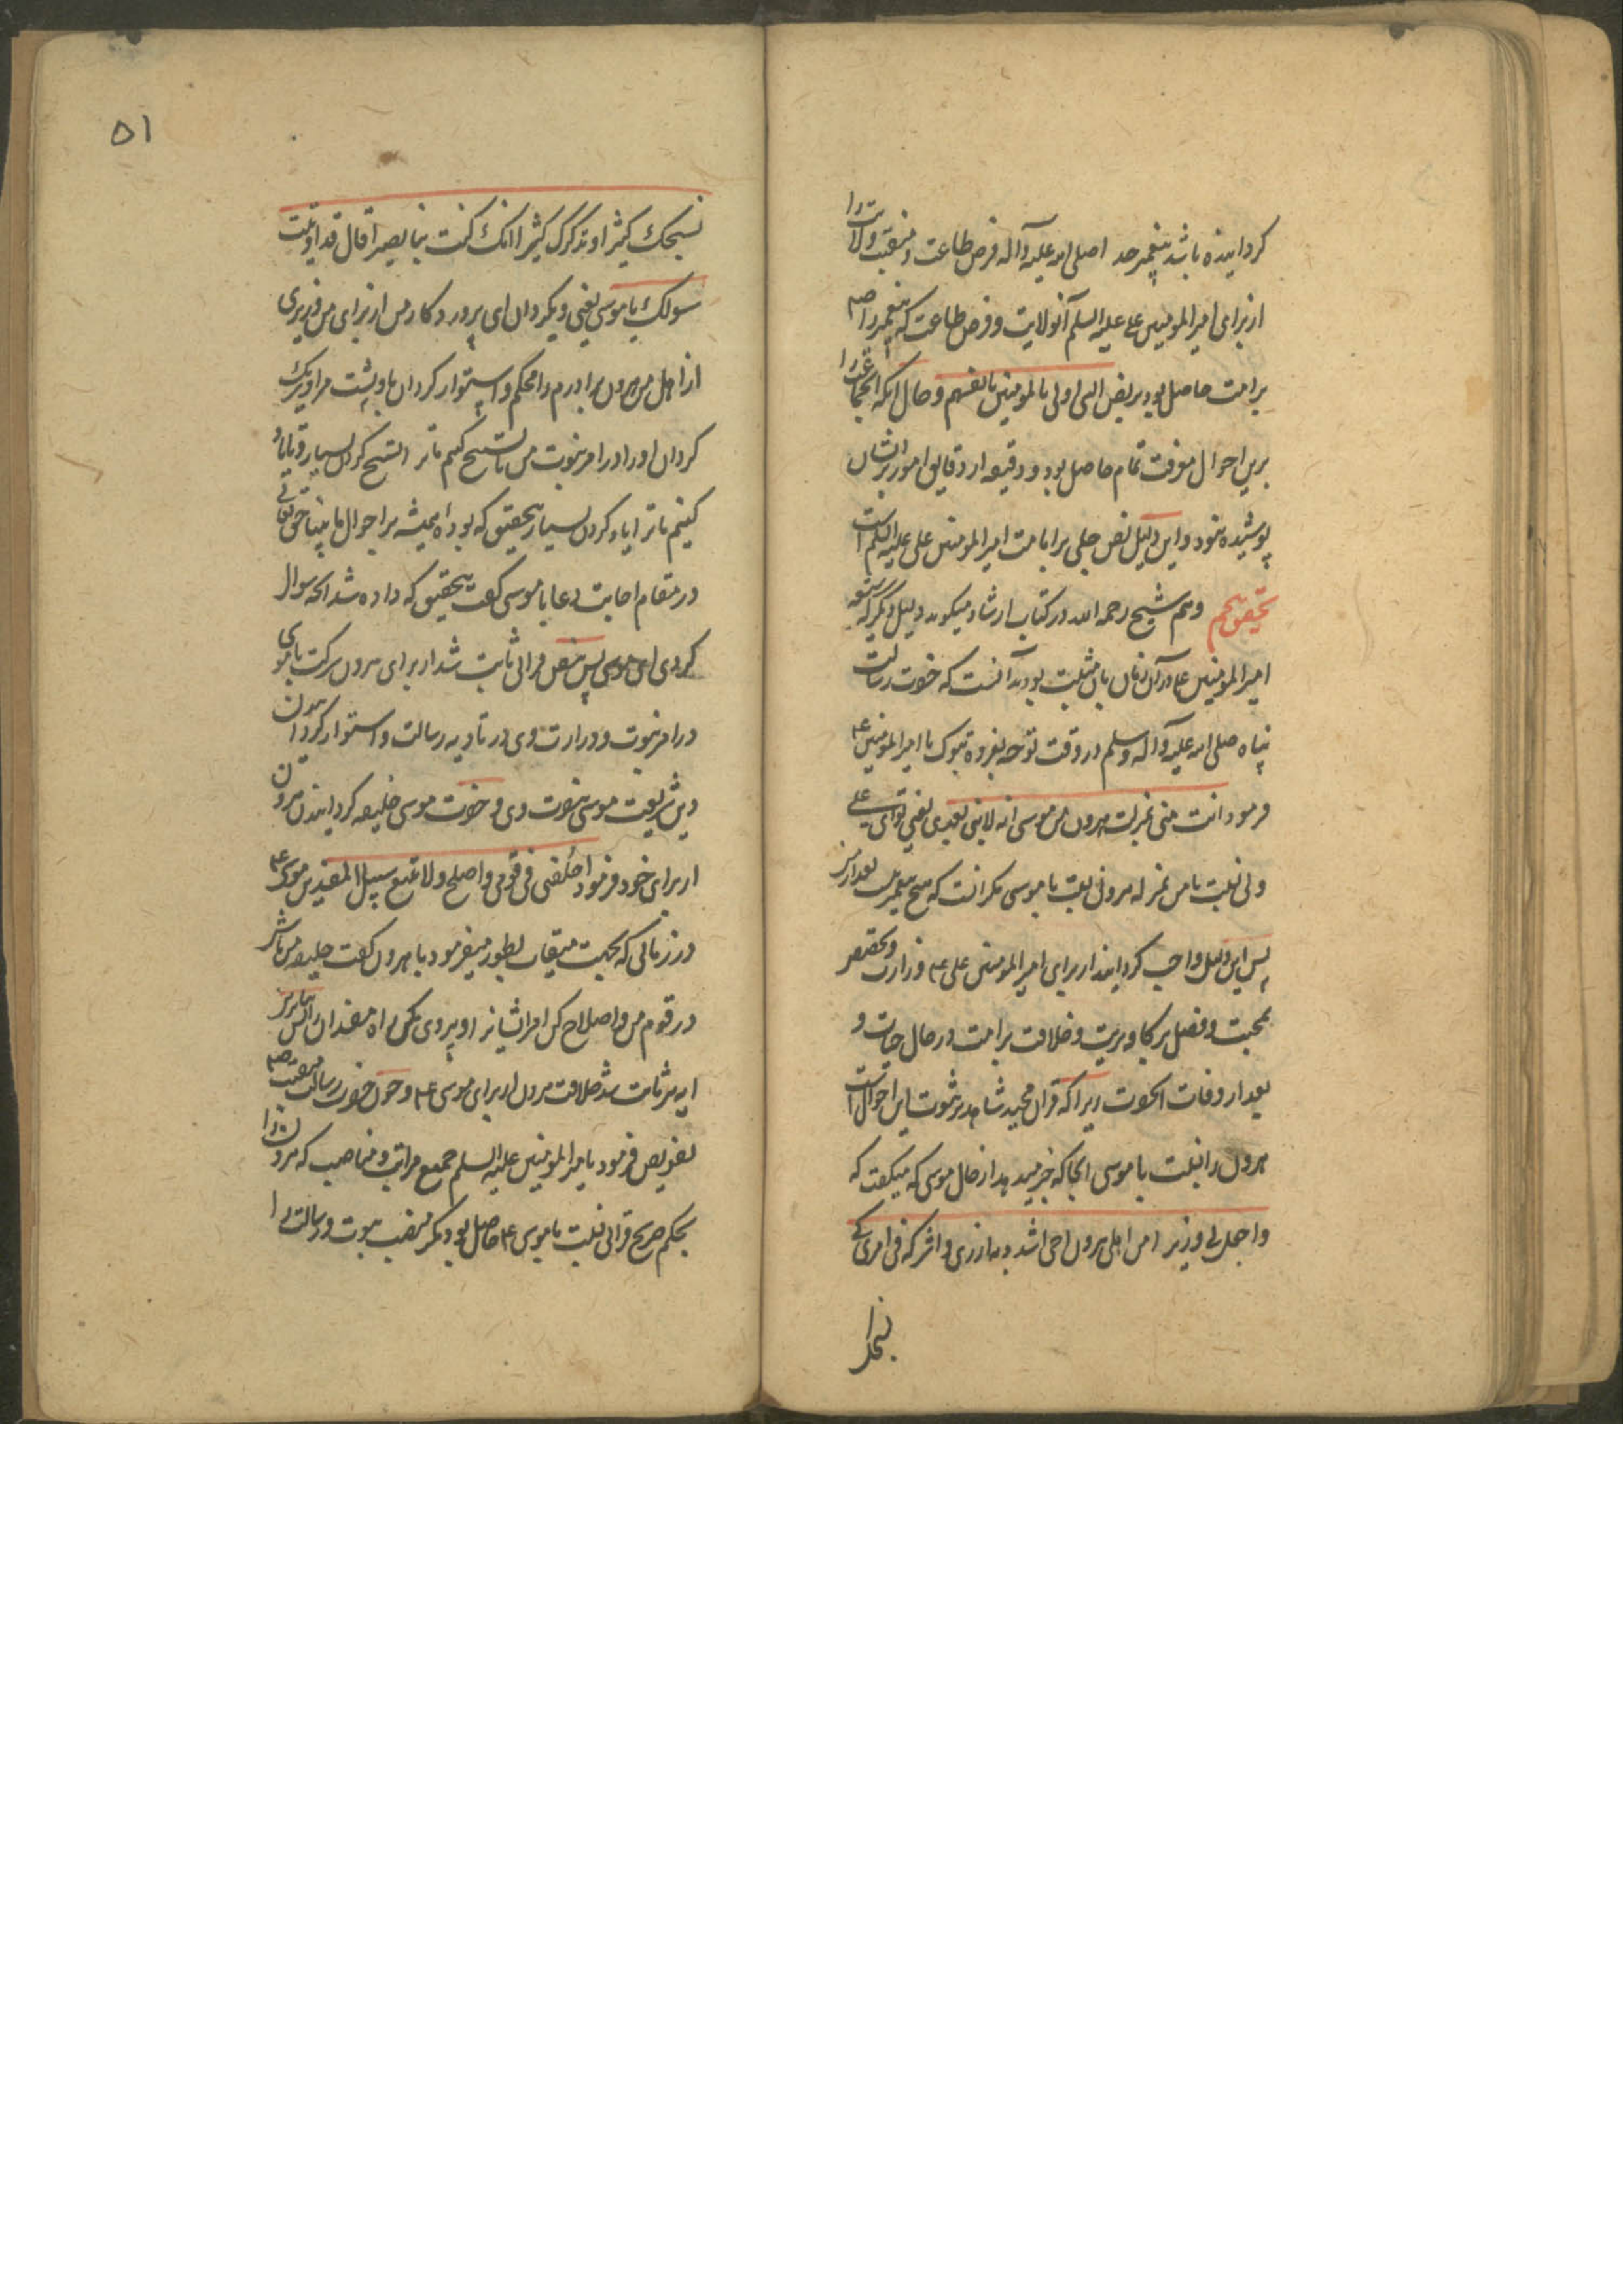 گردانیده باشد پیغمبر خدا صلی الله علیه وآله فرض طاعت و منقبت ولایت را
از برای امیر المومنین علی علیه السلم آنولایت و فرض طاعت که پیغمبر را صم
بر امت حاصل بود بر نص النبی اولی بالمومنین بانفسهم و حال انکه انجماعت را
برین احوال معرفت تمام حاصل بود و دقیقه از دقایق امور بر ایشان
پوشیده نبود و این دلیل نص جلی بر امامت امیر المومنین علی علیه السلم است
تحقیق پنجم وهم شیخ رحمه الله در کتاب ارشاد میگوید دلیل دیگر که
امیر المومنین ع در آن زمان بان مثبت بود آنست که حضرت رسالت
پناه صلی الله علیه وآله وسلم در وقت توجه بغزوه تبوک با امیر المومنین ع
فرمود انت منی بمنزلت هرون من موسی انه لا نبی بعدی یعنی تو ای علی
ولی نسبت با من بمنزله هرونی نسبت با موسی مگر انست که هیچ پیغمبر بعد از من
پس این دلیل واجب گردانید از برای امیر المومنین علی ع وزارت و تخصیص
بمحبت و فضل بر کافه بریت و خلافت بر امت در حال حیات و
بعد از وفات انحضرت زیرا که قران مجید شاهد بر ثبوت این احوال است
هرون را نسبت با موسی انجا که خبر میدهد از حال موسی که میگفت که
واجعل لی وزیرا من اهلی هرون اخی اشدد به ازری و اشرکه فی امری کی
نسبحک
۵۱
نسبحک کثیرا و نذکرک کثیرا انک کنت بنا بصیرا قال قد اوتیت
سولک یا موسی یعنی و بگردان ای پروردگار من از برای من وزیری
از اهل من هرون برادرم را محکم و استوار گردان باو پشت مرا و شریک
گردان او را در امر نبوت من تا تسبیح کنیم ترا تسبیح کردن بسیار و تا یاد
کنیم ترا یاد کردن بسیار بتحقیق که بوده همیشه بر احوال ما بینا حق تعالی
در مقام اجابت دعا با موسی گفت بتحقیق که داده شد انچه سوال
کردی ای موسی پس بنص قرانی ثابت شد از برای هرون شرکت با موسی
در امر نبوت و وزارت وی در تادیه رسالت و استوار گردان شدن
دین شریعت موسی بنبوت وی و حضرت موسی خلیفه گردانید هرون
از برای خود فرمود اخلفنی فی قومی و اصلح ولا تتبع سبیل المفسدین موسی ع
در زمانی که بجهت میقات بطور میفرمود با هرون گفت خلیفه من باش
در قوم من و اصلاح کن امر ایشانرا و پیروی مکن راه مفسدان را پس بنابر
ایه ثابت شد خلافت هرون از برای موسی ع و چون حضرت رسالت منقبت صم
تفویض فرمود بامیر المومنین علیه السلم جمیع مراتب و مناصب که هرون را
بحکم صریح قرانی نسبت با موسی ع حاصل بود مگر منصب نبوت و رسالت را